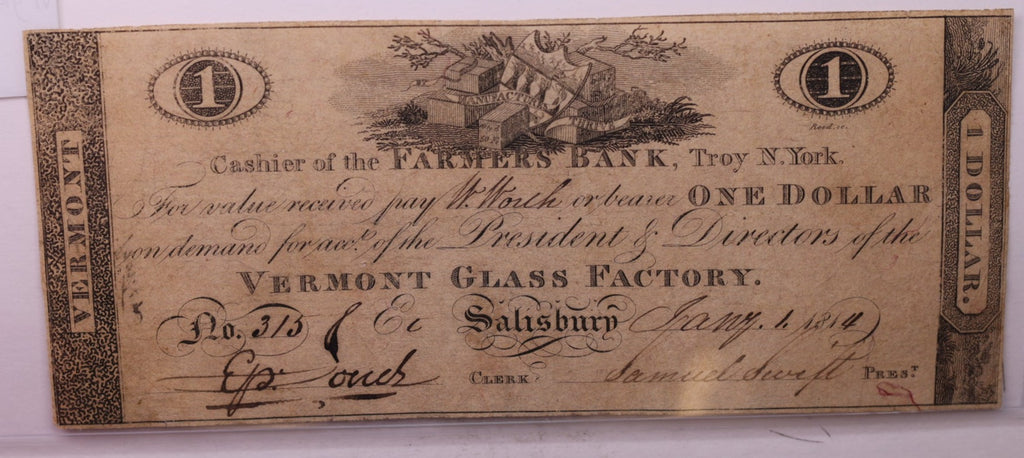 VERMONT
1
1
MANUFACTURE
Reed sc.
1 DOLLAR.
Cashier of the FARMERS BANK, Troy N.York.
For value received pay W. Worth or bearer ONE DOLLAR
on demand for acco.t of the President & Directors of the
VERMONT GLASS FACTORY.
No. 315 Salisbury Jany. 1. 1814
Ep. CLERK Samuel Swift PRES.T